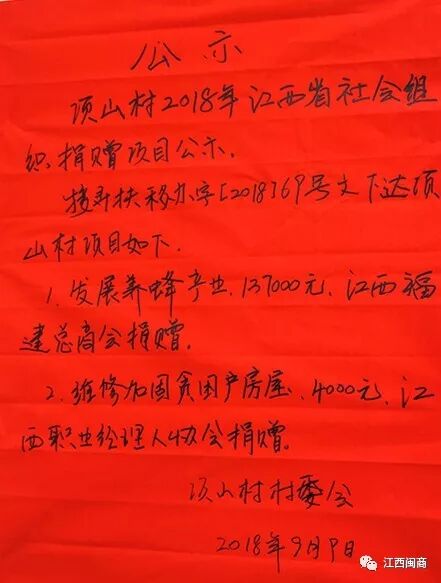 公示
顶山村2018年江西省社会组
织捐赠项目公示。
按寻扶移办字[2018]69号文下达顶
山村项目如下.
1.发展养蜂产业,137000元,江西福
建总商会捐赠。
2.维修加固贫困户房屋,4000元,江
西职业经理人协会捐赠。
顶山村村委会
2018年9月9日
江西闽商